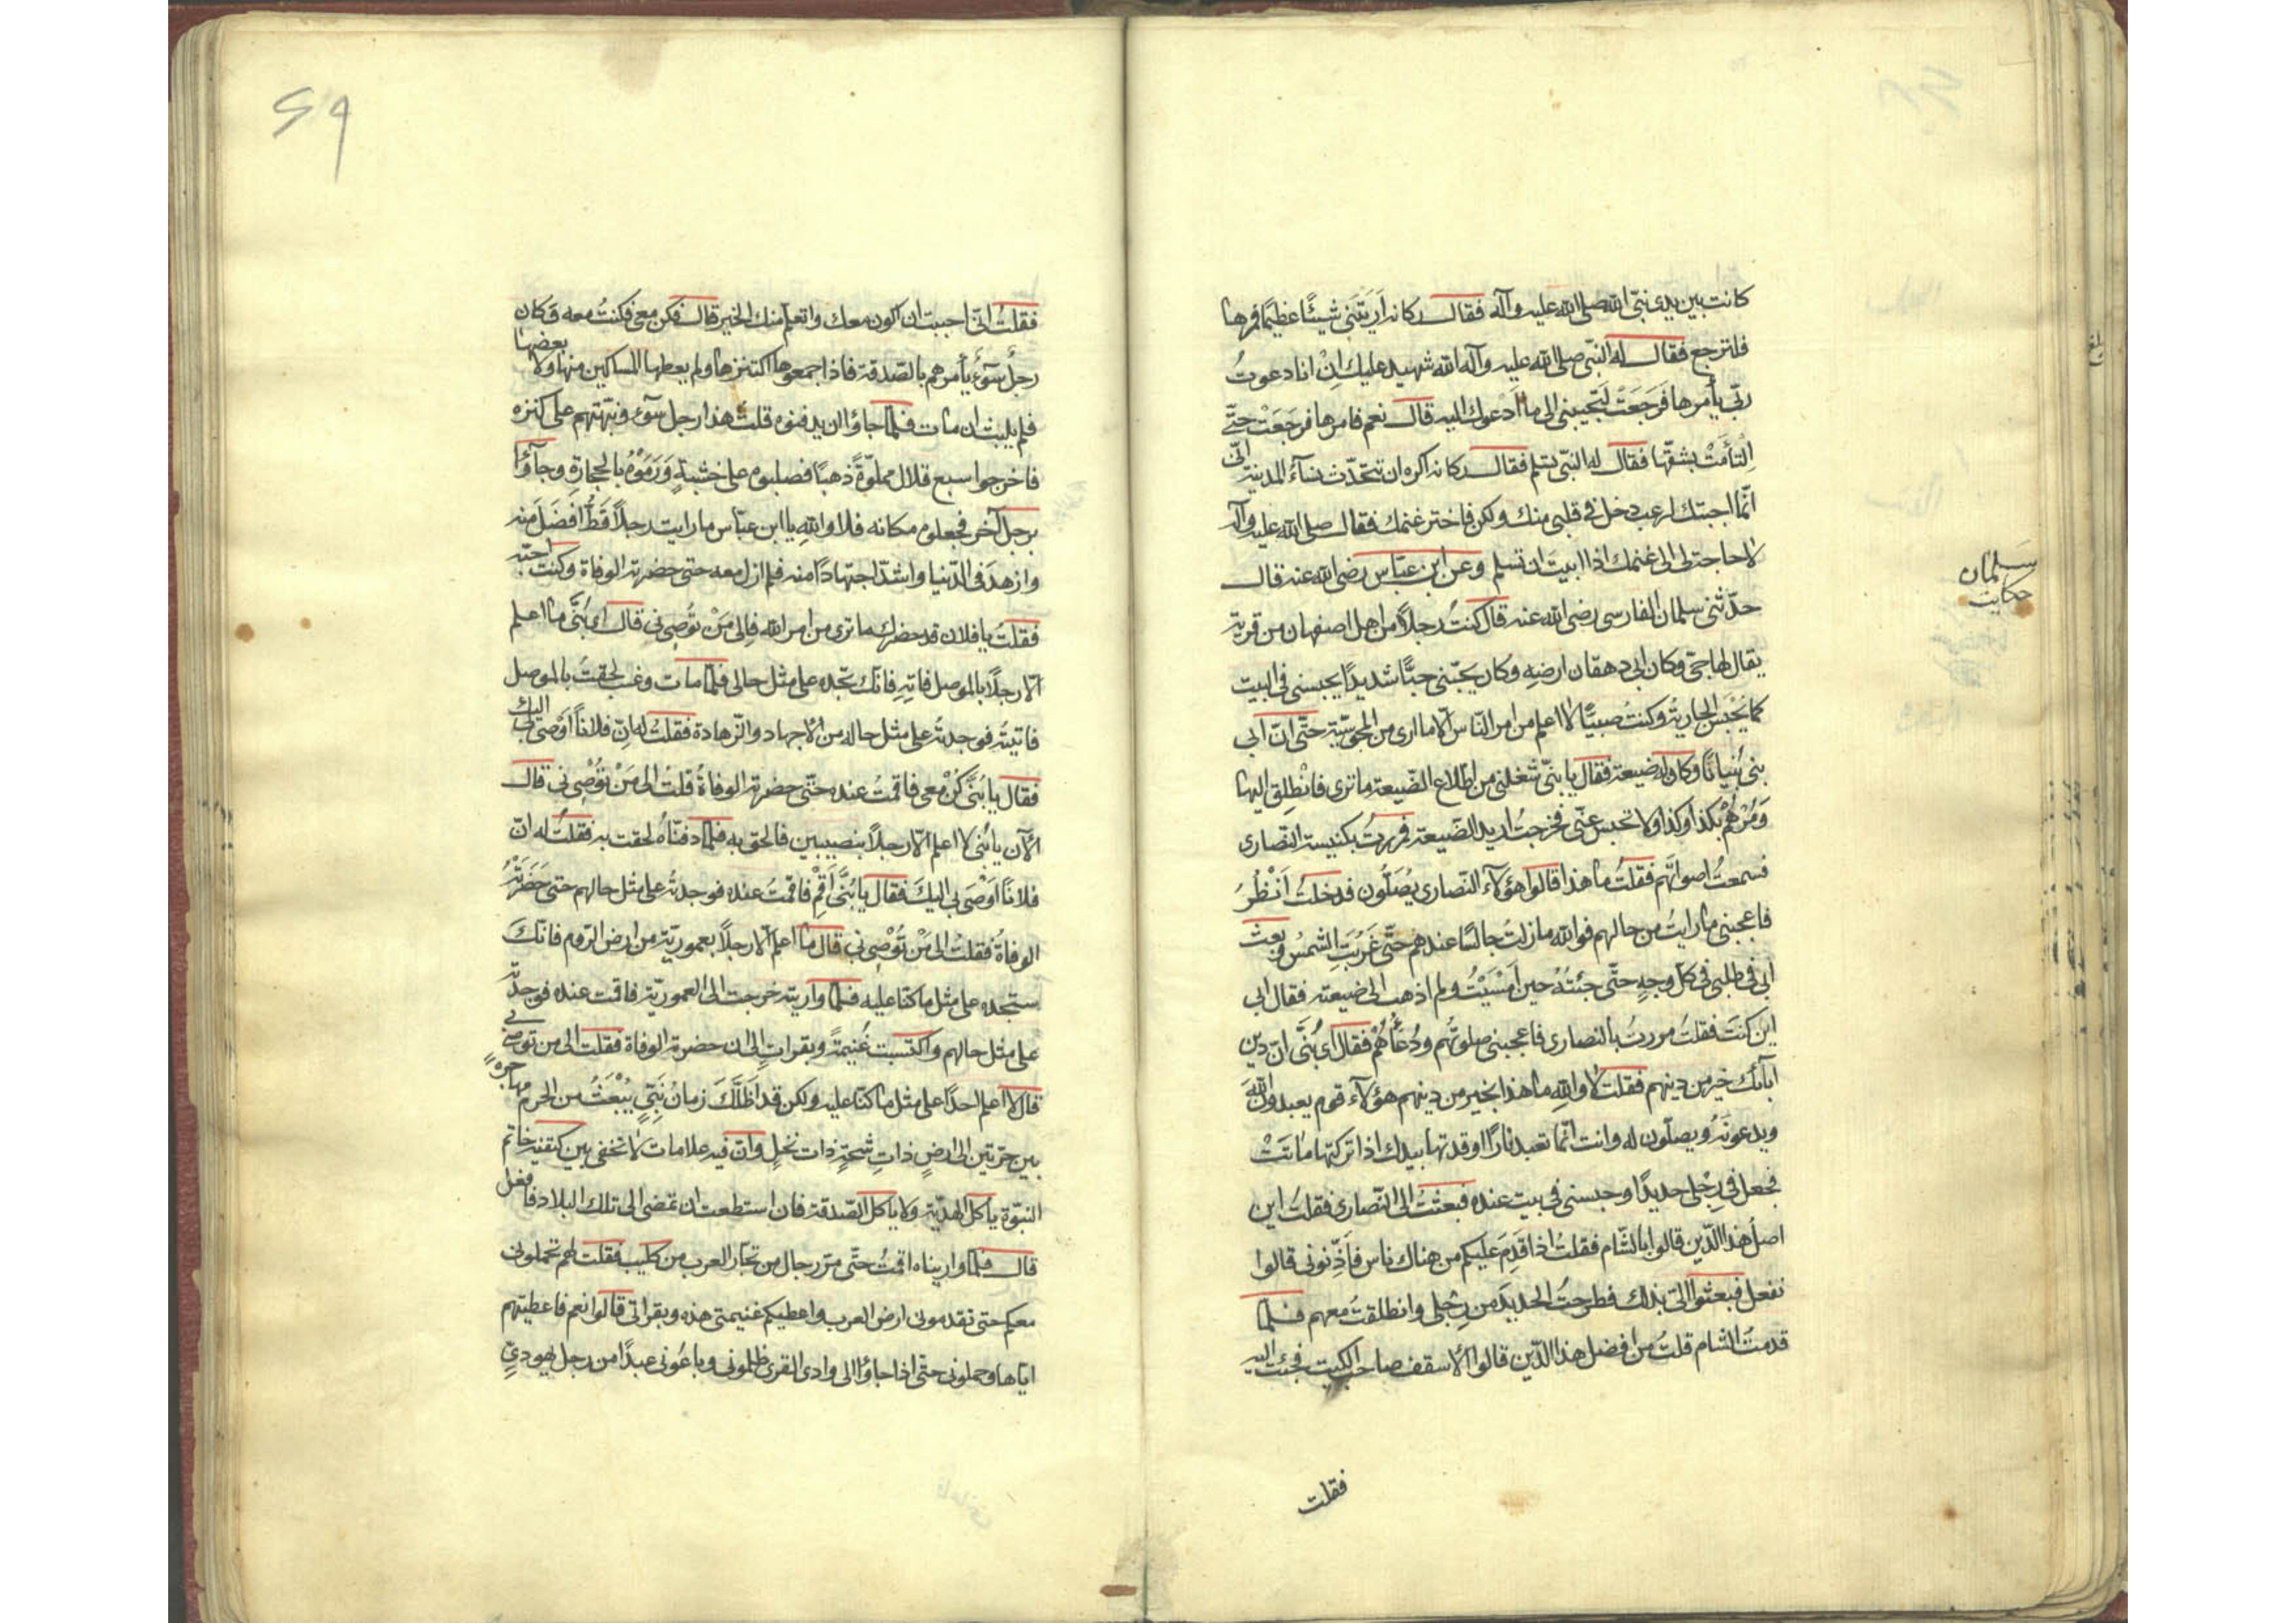 كانت بين يدى نبىّ الله صلى الله عليه وآله فقال ركانه اريتنى شيئًا عظيمًا فمرها
فلترجع فقال له النبى صلى الله عليه وآله الله شهيد عليك ان انا دعوتُ
ربّى يأمرها فرجعت لتجيبنى الى ما ادعوك اليه قال نعم فامرها فرجعت حتّى
التأمت بشقّها فقال له النبىّ تسلم فقال ركانه اكره ان تتحدّث نسآء المدينة انّى
انّما اجبتك لرعب دخل فى قلبى منك ولكن فاختر غنمك فقال صلى الله عليه وآله
لا حاجة لى الى غنمك اذا ابيت ان تسلم وعن ابن عبّاس رضى الله عنه قال
سلمان
حكايت
حدّثنى سلمان الفارسى رضى الله عنه قال كنتُ رجلاً من اهل اصفهان من قرية
يقال لها جىّ وكان ابى دهقان ارضه وكان يحبّنى حبًّا شديدًا يحبسنى فى البيت
كما يُحْبَس الجارية وكنتُ صبيًّا لا اعلم من امر النّاس الّا ما ارى من المجوسيّة حتّى انّ ابى
بنى بُنيانًا وكان له ضيعة فقال يا بنىّ شغلنى من اطّلاع الضّيعة ما ترى فانطلِق اليها
وَمُرْهُمْ بكذا وكذا ولا تحبس عنّى فخرجتُ اريد الضّيعة فمررتُ بكنيسة النّصارى
فسمعتُ اصواتهم فقلتُ ما هذا قالوا هؤلآء النّصارى يُصلّون فدخلتُ اَنْظُرُ
فاعجبنى ما رايتُ من حالهم فوالله ما زلت جالسًا عندهم حتّى غَرُبَتِ الشّمسُ وبعث
ابى فى طلبى فى كلّ وجهٍ حتّى جئتُهُ حين اَمْسَيْتُ ولم اذهب الى ضيعته فقال ابى
اين كنتَ فقلتُ مررتُ بالنصارى فاعجبنى صلوتُهم ودُعآؤُهُمْ فقال اى بُنَّى انّ دين
آبآئك خير من دينهم فقلتُ لا واللهِ ما هذا بخير من دينهم هؤلآء قوم يعبدون اللهَ
ويدعونَهُ ويصلّون له وانت انّما تعبد نارًا اوقدتها بيدك اذا تركتها ماتَتْ
فجعل فى رِجْلى حديدًا وحبسنى فى بيت عنده فبعثتُ الى النّصارى فقلتُ اين
اصلُ هذا الدّين قالوا بالشّام فقلتُ اذا قَدِمَ عليكم من هناك ناس فَآذِنونى قالوا
نفعل فبعثوا الىّ بذلك فطرحتُ الحديدَ من رِجْلى وانطلقتُ معهم فلمّا
قدمتُ الشام قلتُ من افضل هذا الدّين قالوا الأسقف صاحب الكنيسة فجئت اليه
فقلت
٢٩
فقلتُ انّى احببت ان اكون معك واتعلم منك الخير قال فكن معى فكنتُ معه وكان
رجلُ سَوْءٍ يأمرهم بالصّدقة فاذا جمعوها اكتنزها ولم يعطها المساكين منها ولا بعضها
فلم يلبث ان مات فلمّا جاؤا ان يدفنوه قلت هذا رجل سوء ونبّهتهم على كنزه
فاخرجوا سبع قلال مملوّةً ذهبًا فصلبوه على خشبةٍ وَرَمَوْهُ بالحجارة وجآؤا
برجل آخر فجعلوه مكانه فلا والله يا ابن عبّاس ما رايت رجلاً قطُّ افضَلَ منه
وازهدَ فى الدّنيا واشدّ اجتهادًا منه فلم ازل معه حتى حضرته الوفاة وكنت احبّه
فقلتُ يا فلان قد حضرك ما ترى من امر الله فاِلى مَنْ تُوصِى بى قال اى بُنَّى ما اعلم
الّا رجلاً بالموصل فاتِهِ فانّك تجده على مثل حالى فلمّا مات وغيب لحقتُ بالموصل
فاتيتُه فوجدته على مثل حاله من الاجتهاد والزّهادة فقلتُ له انّ فلانًا اَوْصَى بى اليك
فقال يا بُنَّى كُنْ معى فاقمتُ عنده حتّى حضرته الوفاةُ قلتُ الى مَنْ تُوصِى بى قال
الآن يا بُنّى لا اعلم الّا رجلاً بنصيبين فالحق به فلمّا دفنّاهُ لحقت به فقلتُ له انّ
فلانًا اَوْصَى بى اليكَ فقال يا بُنَّى اَقِمْ فاقمتُ عنده فوجدتُه على مثل حالهم حتى حَضَرَتْهُ
الوفاةُ فقلتُ الى مَنْ تُوْصِى بى قال ما اعلم الّا رجلاً بعموريّة من ارض الرّوم فانّكَ
ستجده على مثل ما كنّا عليه فلمّا واريته خرجت الى العموريّة فاقمت عنده فوجدته
على مثل حالهم واكتسبت غُنيمةً وبقراتٍ الى ان حضرته الوفاة فقلت الى من توصى بى
قال لا اعلم احدًا على مثل ما كنّا عليه ولكن قد اَظَلَّكَ زمانُ نَبِىٍّ يُبْعَثُ من الحرم مهاجره
بين حرّتين الى ارضٍ ذاتِ سَبْخةٍ ذات نخلٍ وانّ فيه علامات لا تخفى بين كتفيه خاتم
النبوّة يأكل الهديّة ولا يأكل الصّدقة فان استطعت ان تمضى الى تلك البلاد فافعل
قال فلمّا واريناه اقمتُ حتّى مرّ رجال من تجّار العرب من كليب فقلت لهم تحملونى
معكم حتى تقدمونى ارض العرب واعطيكم غنيمتى هذه وبقراتى قالوا نعم فاعطيتهم
ايّاها وحملونى حتّى اذا جاؤا الى وادى القرى ظلمونى وباعُونى عبدًا من رجل يهودىٍّ